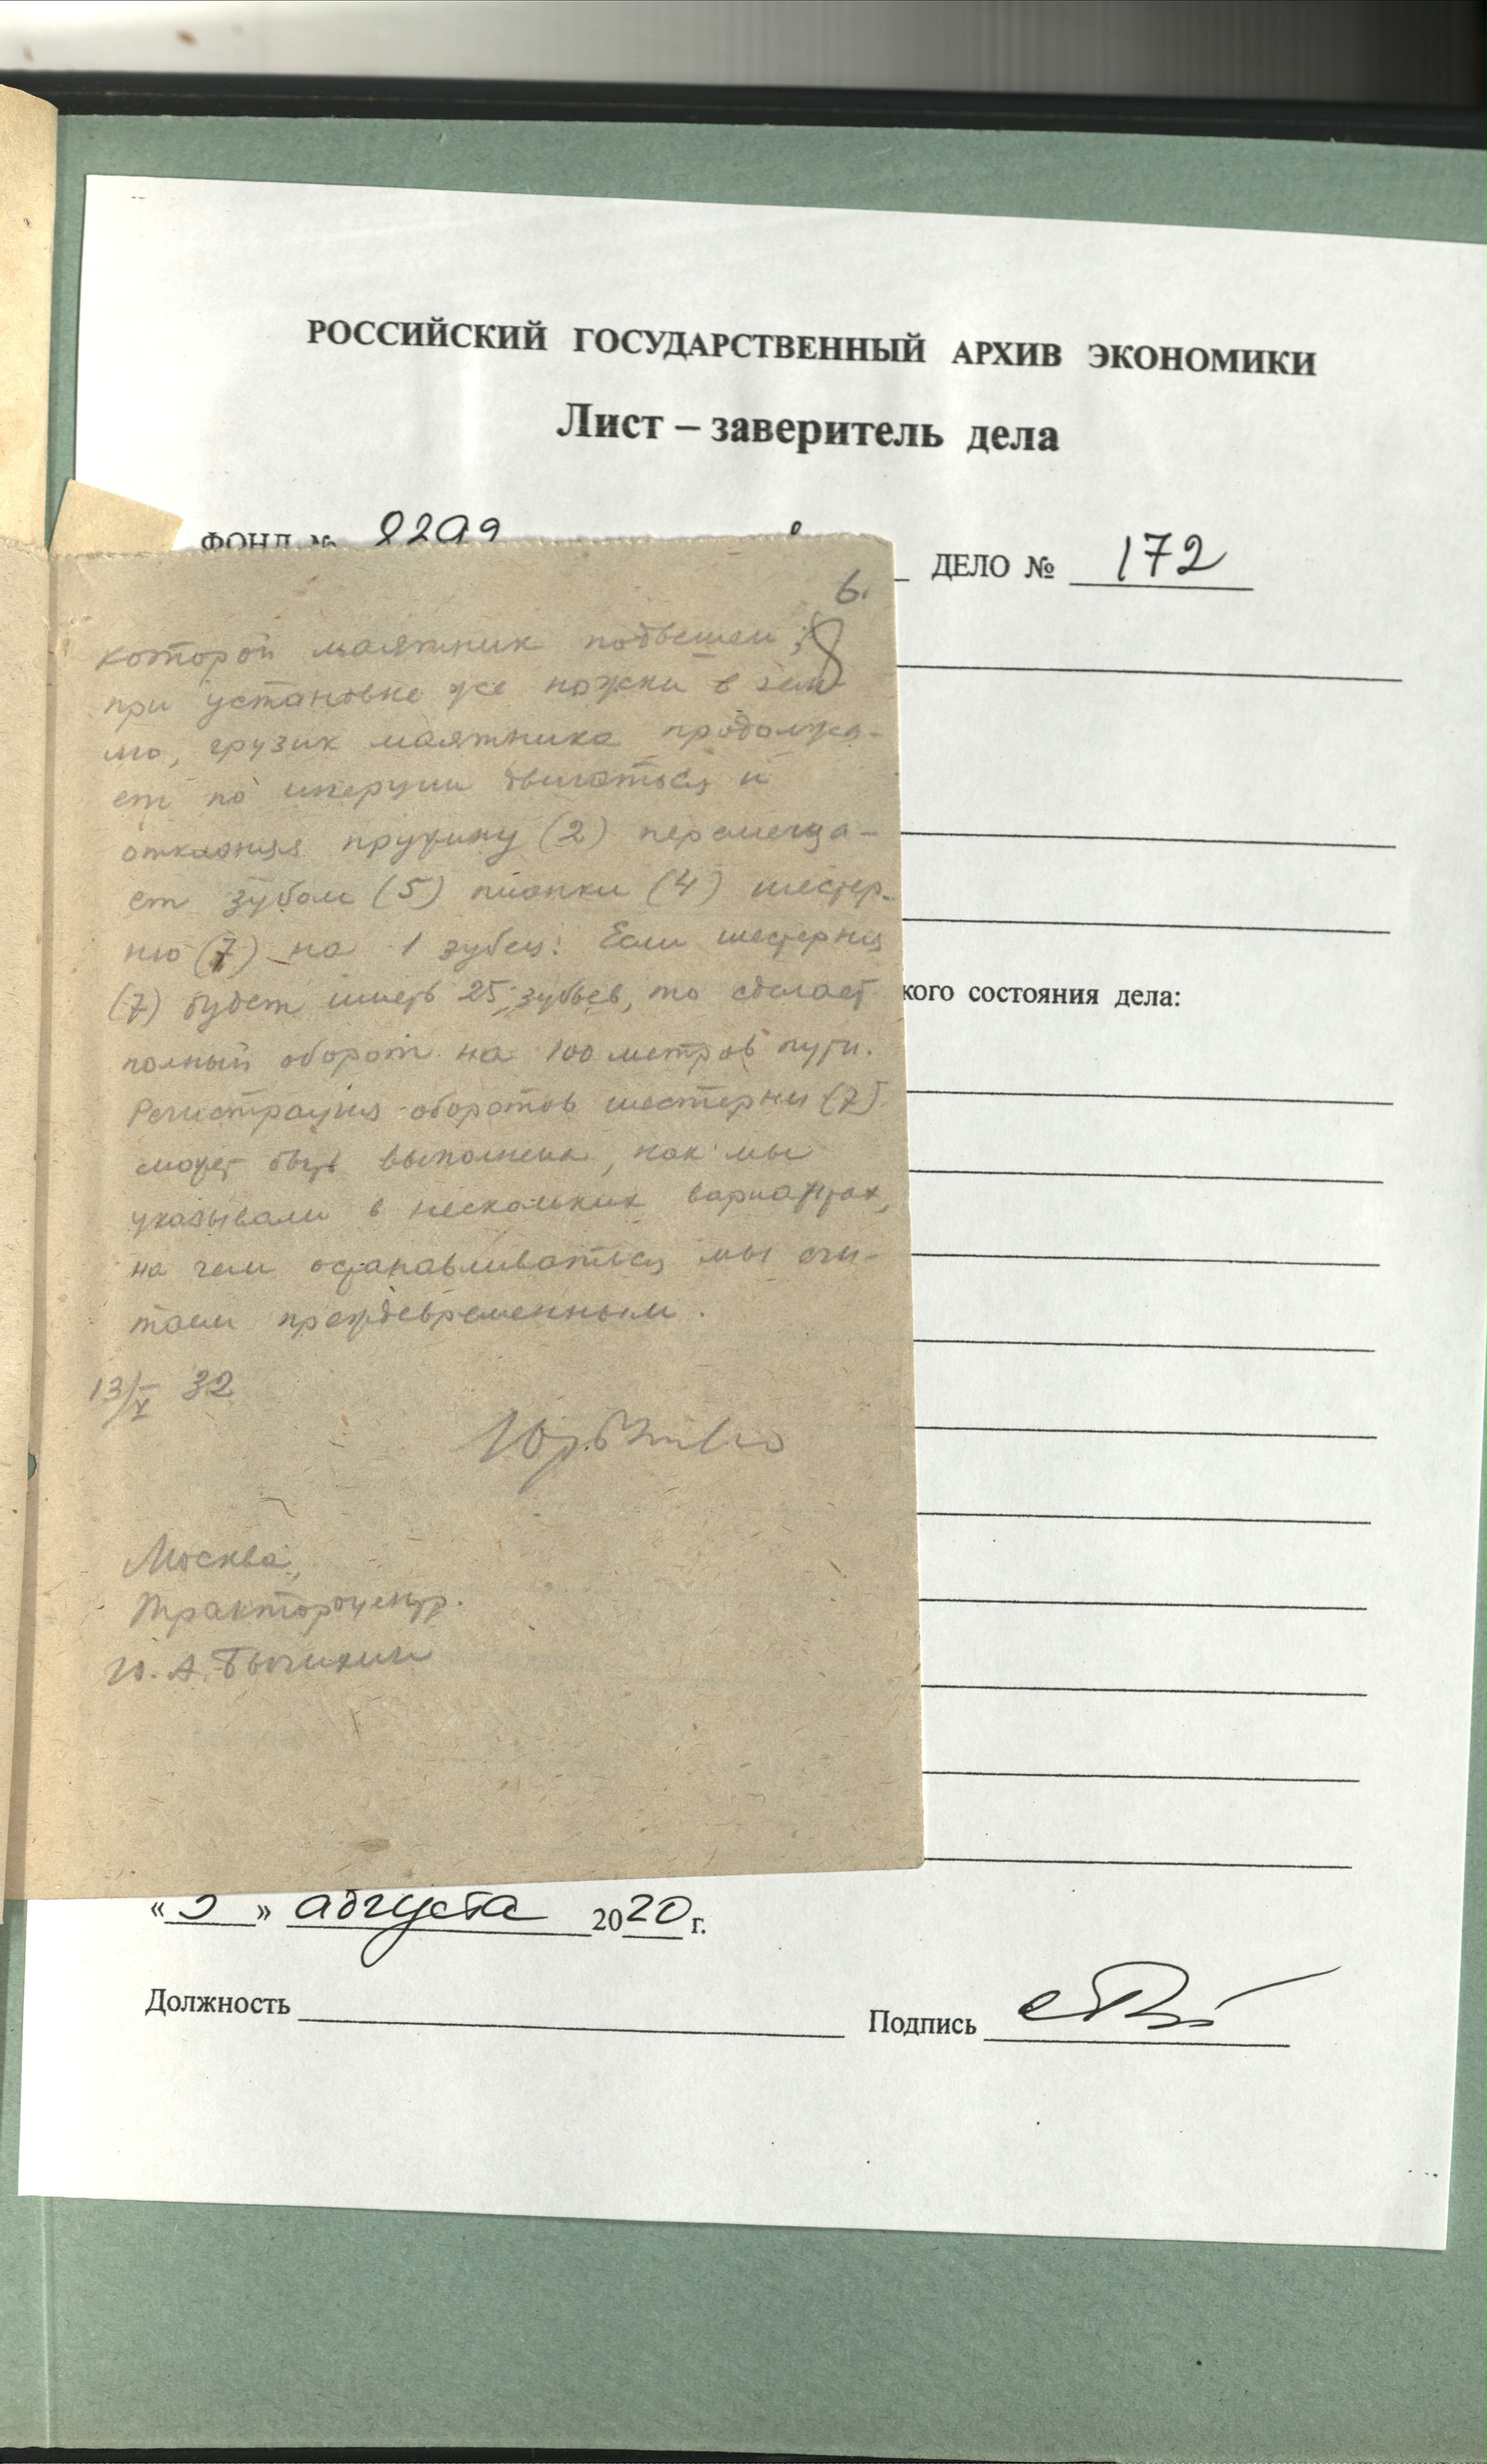 РОССИЙСКИЙ ГОСУДАРСТВЕННЫЙ АРХИВ ЭКОНОМИКИ
Лист – заверитель дела
ФОНД № 8299 ДЕЛО № 172
6.
8
которой маятник подвешен;
при установке же ножки в зем-
лю, грузик маятника продолжа-
ет по инерции двигаться и
отклоняя пружину (2) перемеща-
ет зубом (5) планки (4) шестер-
ню (7) на 1 зубец. Если шестерня
(7) будет иметь 25 зубьев, то сделает
полный оборот на 100 метров пути.
Регистрация оборотов шестерни (7)
может быть выполнена, как мы
указывали в нескольких вариантах,
на чем останавливаться мы счи-
таем преждевременным.
13/X 32
Москва,
Трактороцентр.
кого состояния дела:
« 5 » августа 2020 г.
Должность Подпись